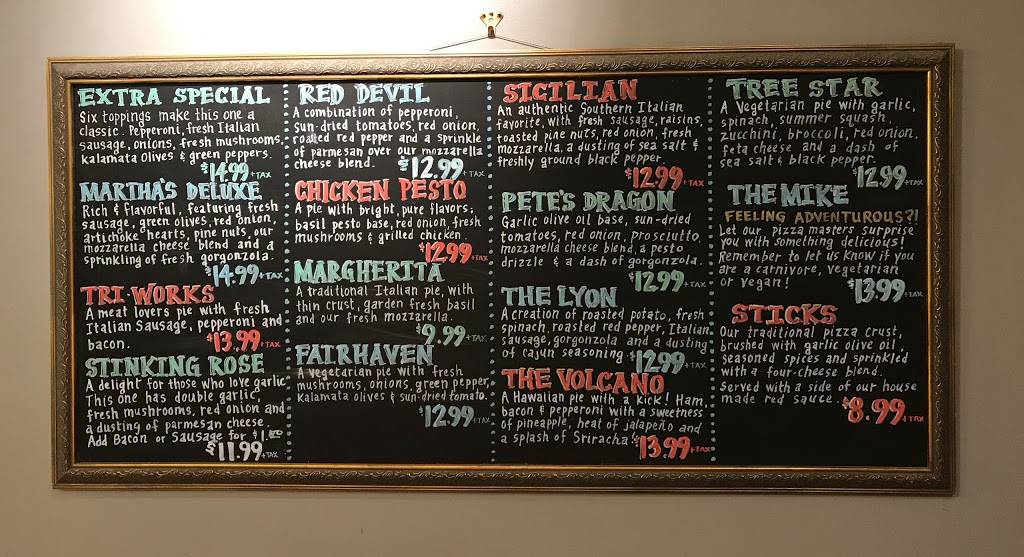 EXTRA SPECIAL
Six toppings make this one a
classic. Pepperoni, fresh Italian
sausage, onions, fresh mushrooms,
kalamata olives & green peppers.
$14.99 +TAX
MARTHA'S DELUXE
Rich & flavorful, featuring fresh
sausage, green olives, red onion,
artichoke hearts, pine nuts, our
mozzarella cheese blend and a
sprinkling of fresh gorgonzola.
$14.99 +TAX
TRI-WORKS
A meat lovers pie with fresh
Italian Sausage, pepperoni and
bacon.
$13.99 +TAX
STINKING ROSE
A delight for those who love garlic.
This one has double garlic,
fresh mushrooms, red onion and
a dusting of parmesan cheese.
Add Bacon or Sausage for $1.00
$11.99 +TAX
RED DEVIL
A combination of pepperoni,
sun-dried tomatoes, red onion,
roasted red pepper and a sprinkle
of parmesan over our mozzarella
cheese blend.
$12.99 +TAX
CHICKEN PESTO
A pie with bright, pure flavors;
basil pesto base, red onion, fresh
mushrooms & grilled chicken.
$12.99 +TAX
MARGHERITA
A traditional Italian pie, with
thin crust, garden fresh basil
and our fresh mozzarella.
$9.99 +TAX
FAIRHAVEN
A vegetarian pie with fresh
mushrooms, onions, green pepper,
kalamata olives & sun-dried tomato.
$12.99 +TAX
SICILIAN
An authentic Southern Italian
favorite, with fresh sausage, raisins,
roasted pine nuts, red onion, fresh
mozzarella, a dusting of sea salt &
freshly ground black pepper.
$12.99 +TAX
PETE'S DRAGON
Garlic olive oil base, sun-dried
tomatoes, red onion, prosciutto,
mozzarella cheese blend, a pesto
drizzle & a dash of gorgonzola.
$12.99 +TAX
THE LYON
A creation of roasted potato, fresh
spinach, roasted red pepper, Italian
sausage, gorgonzola and a dusting
of cajun seasoning.
$12.99 +TAX
THE VOLCANO
A Hawaiian pie with a kick! Ham,
bacon & pepperoni with a sweetness
of pineapple, heat of jalapeño and
a splash of Sriracha!
$13.99 +TAX
TREE STAR
A Vegetarian pie with garlic,
spinach, summer squash,
zucchini, broccoli, red onion,
feta cheese and a dash of
sea salt & black pepper.
$12.99 +TAX
THE MIKE
FEELING ADVENTUROUS?!
Let our pizza masters surprise
you with something delicious!
Remember to let us know if you
are a carnivore, vegetarian
or vegan!
$13.99 +TAX
STICKS
Our traditional pizza crust,
brushed with garlic olive oil,
seasoned spices and sprinkled
with a four-cheese blend.
Served with a side of our house
made red sauce.
$8.99 +TAX